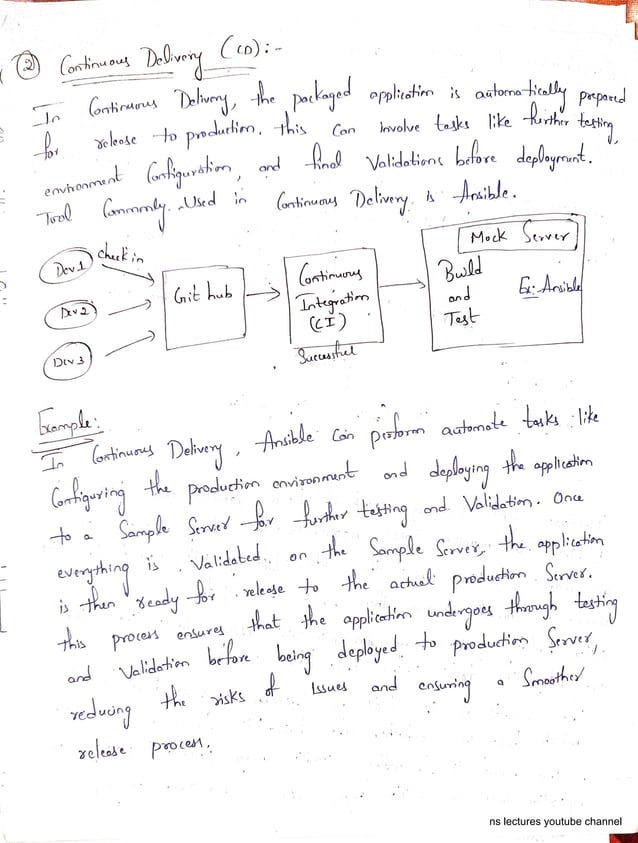 ② Continuous Delivery (CD):-
In Continuous Delivery, the packaged application is automatically prepared
for release to production. this can involve tasks like further testing,
environment Configuration, and final Validations before deployment.
Tool Commonly Used in Continuous Delivery is Ansible.
Dev1
check in
Dev2
Dev3
Git hub
Continuous
Integration
(CI)
Successful
Mock Server
Build
and
Test
Ex:- Ansible
Example:
In Continuous Delivery, Ansible can perform automate tasks like
Configuring the production environment and deploying the application
to a Sample Server for further testing and Validation. Once
everything is Validated on the Sample Server, the application
is then ready for release to the actual production Server.
this process ensures that the application undergoes through testing
and Validation before being deployed to production Server,
reducing the risks of Issues and ensuring a Smoother
release process.
ns lectures youtube channel